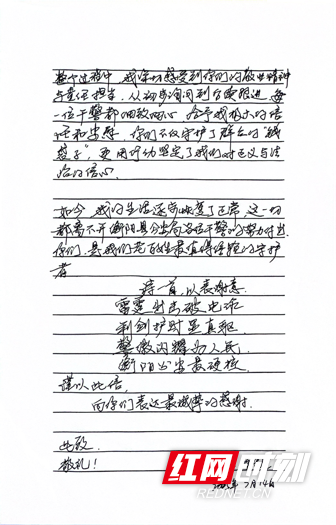 整个过程中，我深切感受到你们的敬业精神
与责任担当。从初步询问到后续跟进，每
一位干警都细致耐心，给予我极大的信
任和安慰。你们不仅守护了群众的“钱
袋子”，更用行动坚定了我们对正义与法
治的信心。
如今，我的生活逐步恢复了正常，这一切
都离不开衡阳县公安局各位干警的努力付出
你们，是我们老百姓最值得信赖的守护
者
诗一首，以表谢意
雷霆出击破电诈
利剑护财显真招
警徽闪耀为人民
衡阳公安最硬核
谨以此信，
向你们表达最诚挚的感谢。
此致
敬礼！
2025年7月14日
红网时刻
REDNET.CN